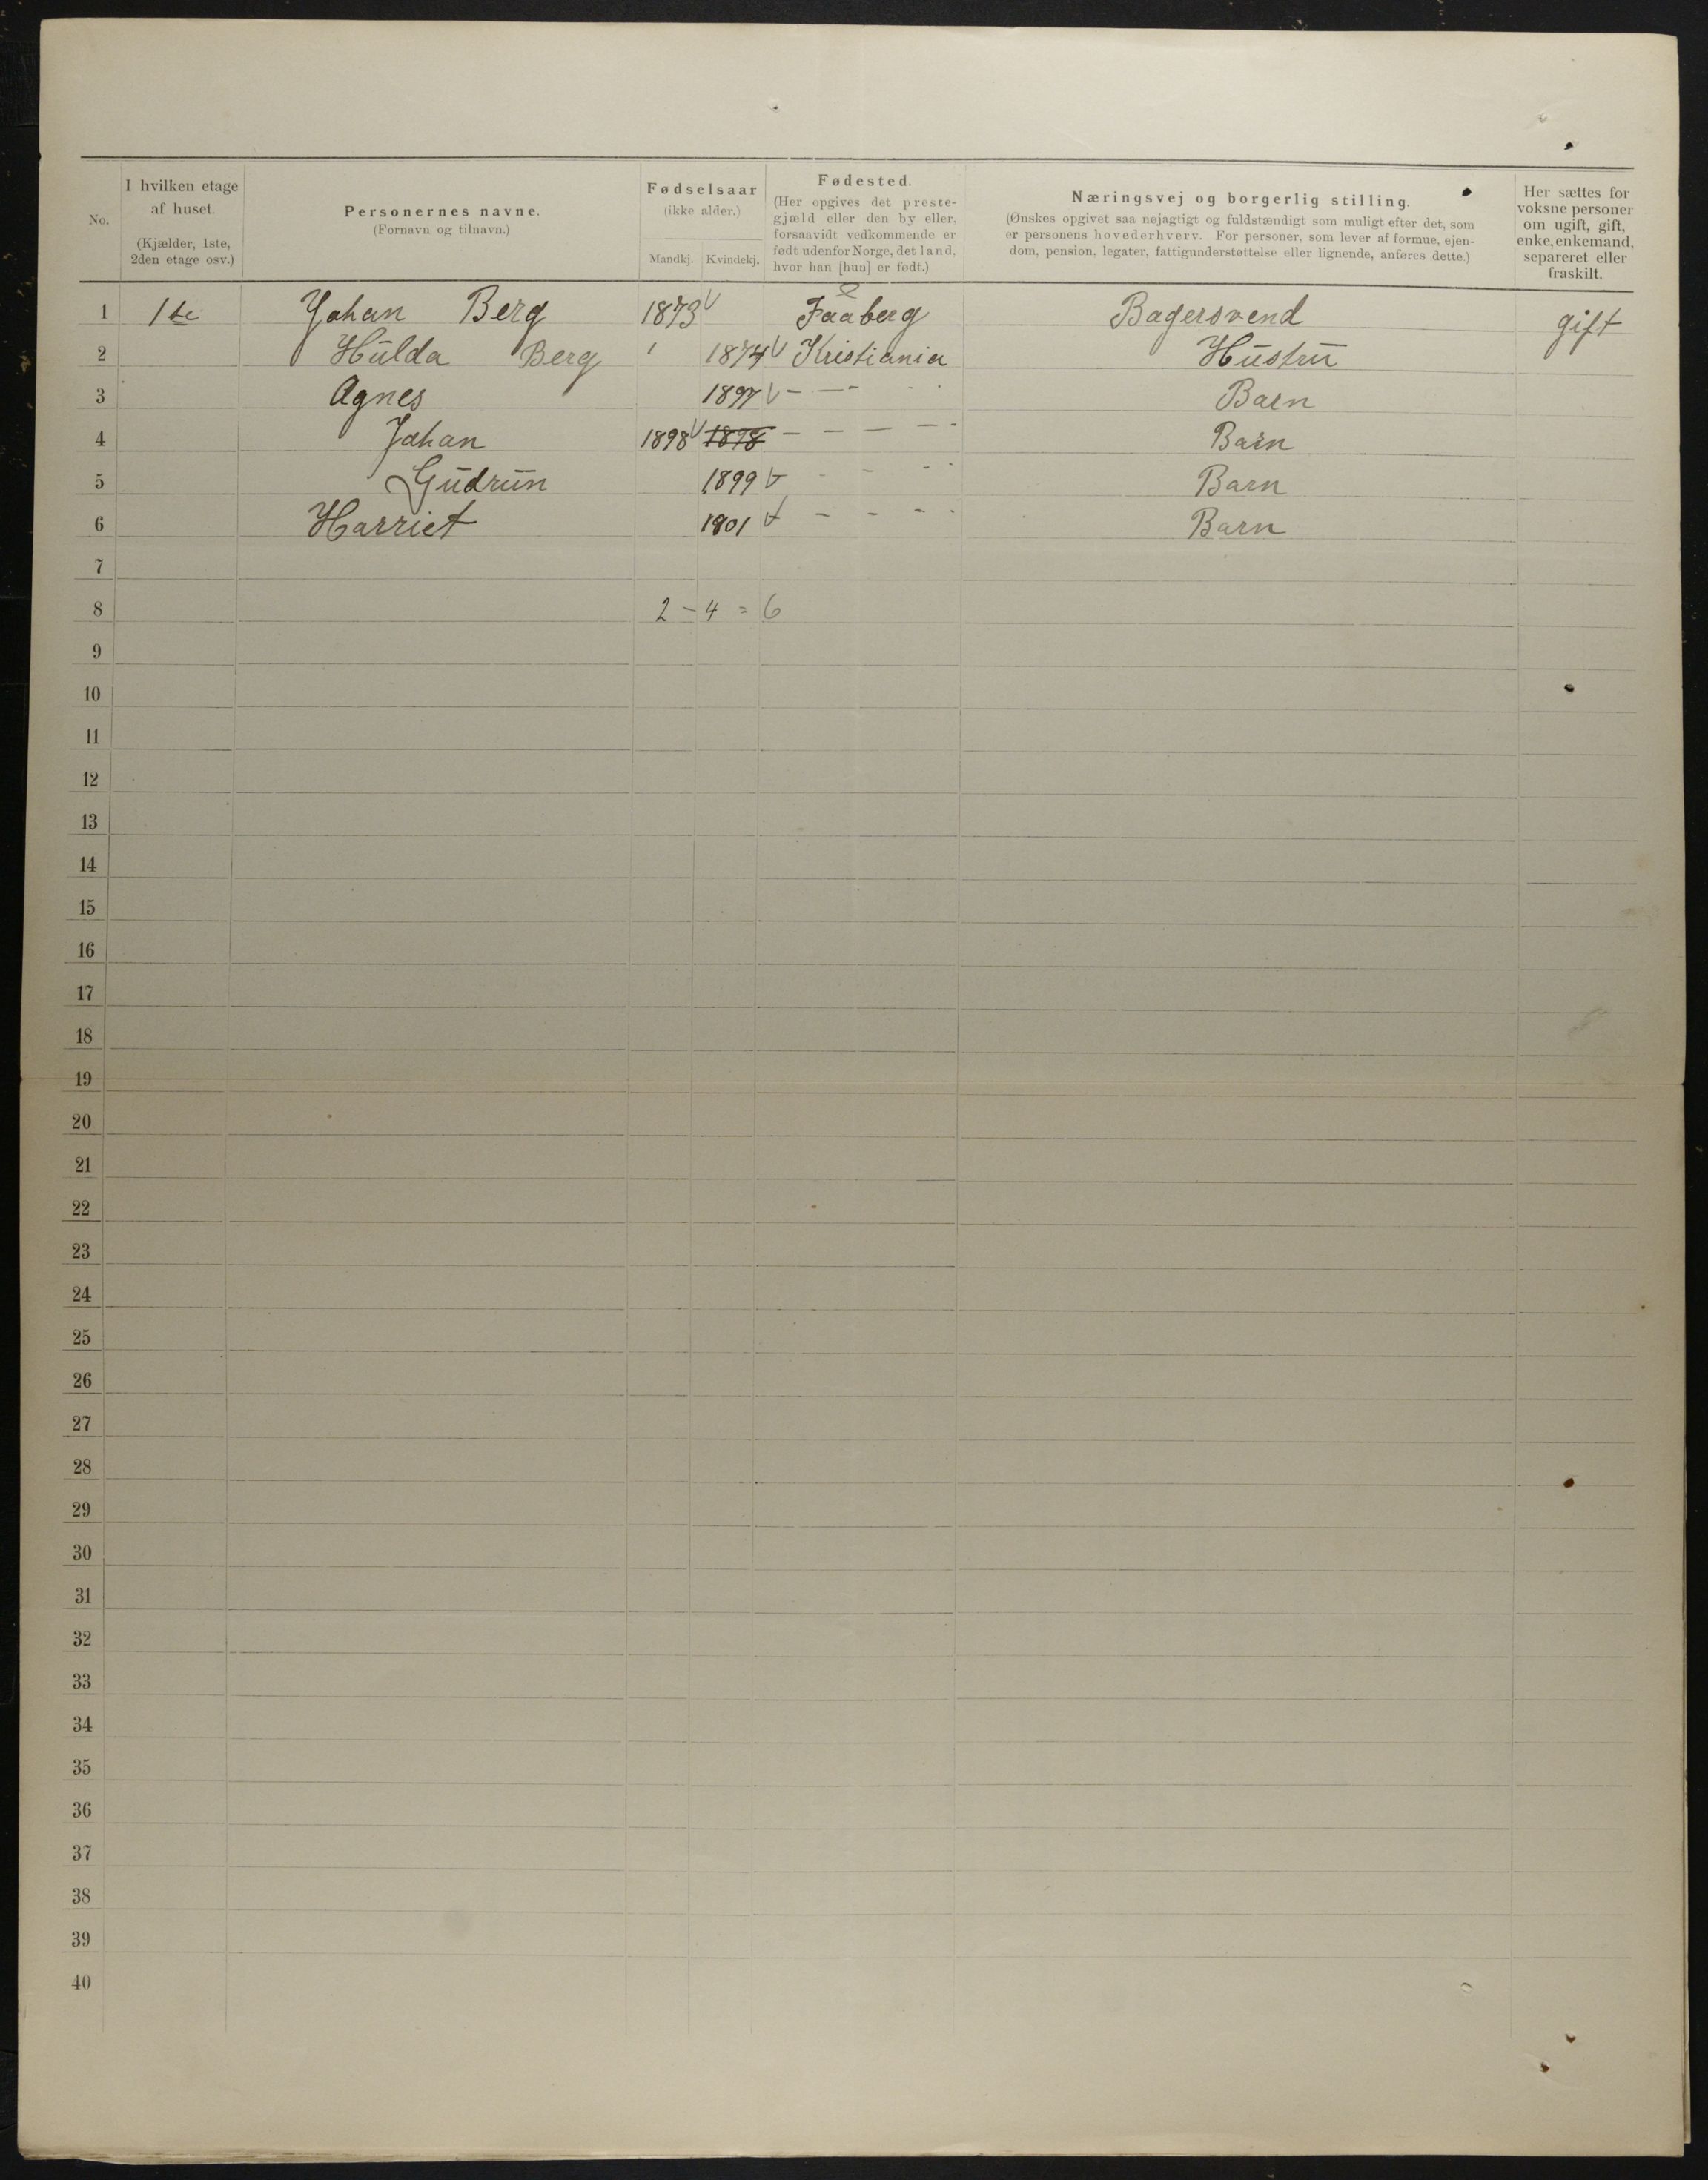 No.
I hvilken etage af huset. (Kjælder, 1ste, 2den etage osv.)
Personernes navne. (Fornavn og tilnavn.)
Fødselsaar (ikke alder.)
Mandkj. Kvindekj.
Fødested. (Her opgives det prestegjæld eller den by eller, forsaavidt vedkommende er født udenfor Norge, det land, hvor han [hun] er født.)
Næringsvej og borgerlig stilling.
(Ønskes opgivet saa nøjagtigt og fuldstændigt som muligt efter det, som er personens hovederhverv. For personer, som lever af formue, ejendom, pension, legater, fattigunderstøttelse eller lignende, anføres dette.)
Her sættes for voksne personer om ugift, gift, enke, enkemand, separeret eller fraskilt.
1 1ste Johan Berg 1873 Faaberg Bagersvend gift
2 Hulda Berg 1874 Kristiania Hustru
3 Agnes 1897 - — - Barn
4 Johan 1898 1898 - - - - - Barn
5 Gudrun 1899 - - - - Barn
6 Harriet 1901 - - - - Barn
7
8 2 - 4 = 6
9
10
11
12
13
14
15
16
17
18
19
20
21
22
23
24
25
26
27
28
29
30
31
32
33
34
35
36
37
38
39
40